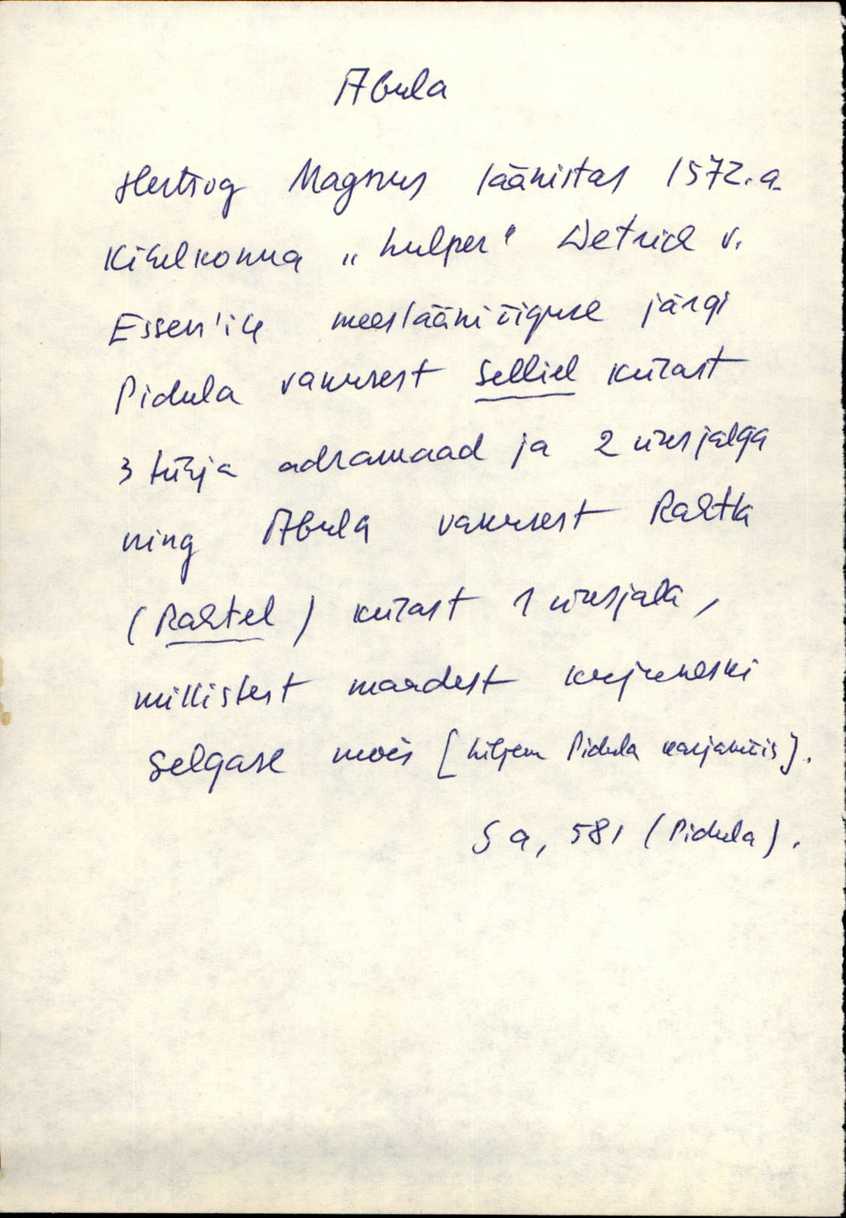 Abula
Hertsog Magnus läänistas 1572. a.
Kihelkonna „hulper" Detrich v.
Essen'ile meeslääniõiguse järgi
Pidula vakusest Selliel külast
3 tühja adramaad ja 2 üksjalga
ning Abula vakusest Rahtla
(Rahtel) külast 1 üksjala,
millistest maadest kujuneski
Selgase mõis [hiljem Pidula karjamõis].
Sa, 581 (Pidula).